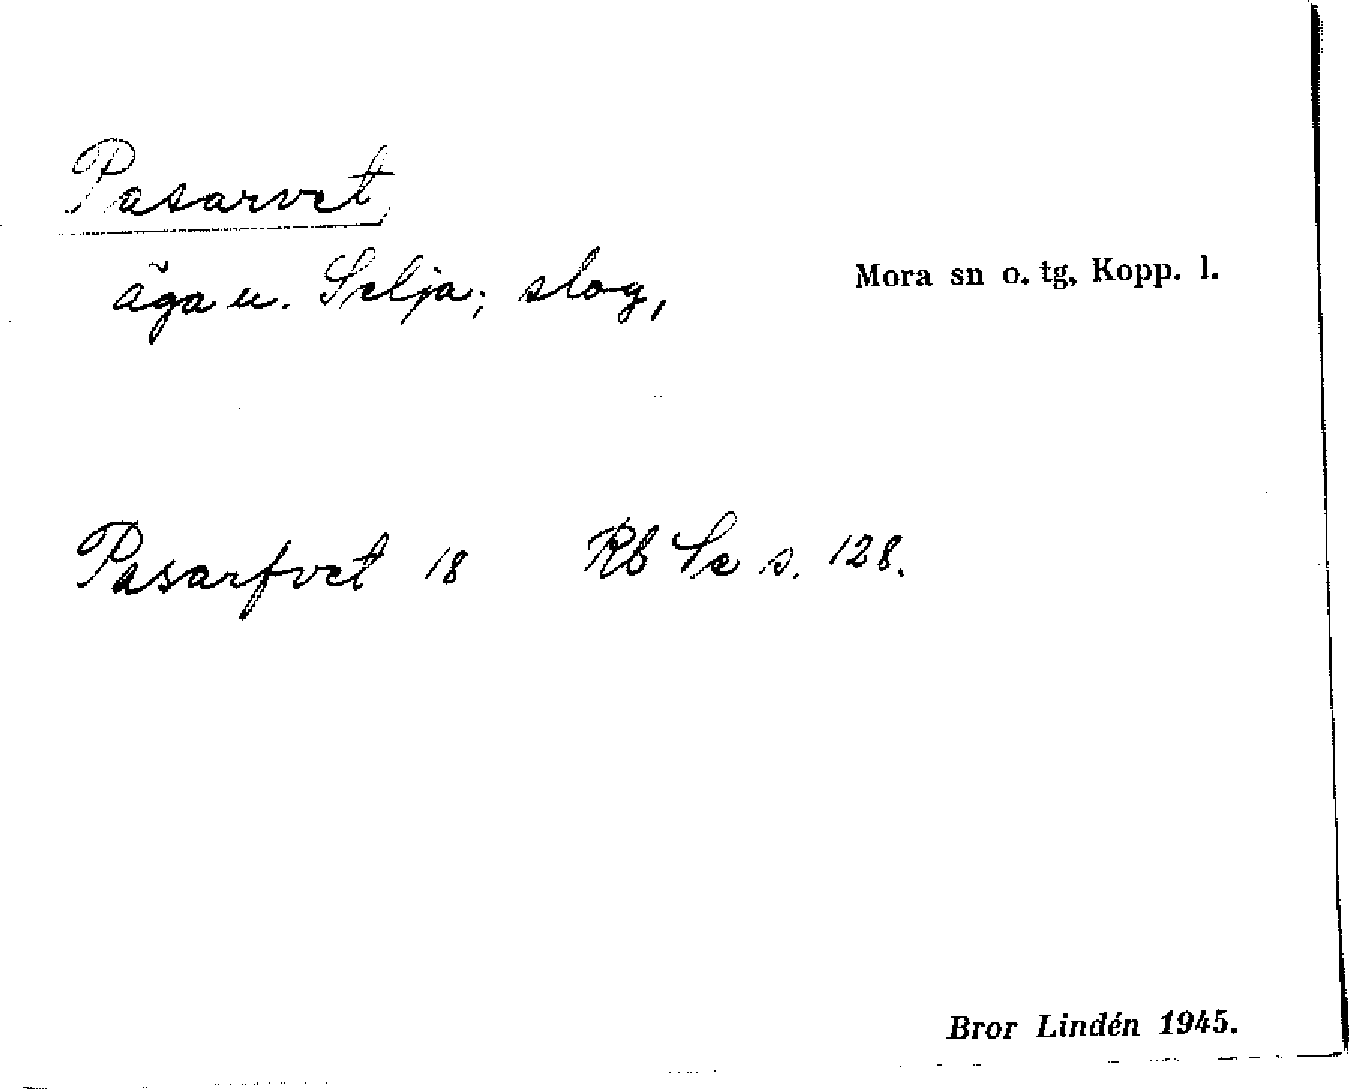 Pasarvet
äga u. Selja; slog,
Mora sn o. tg, Kopp. l.
Pasarfvet 18 Rb Se s. 128.
Bror Lindén 1945.